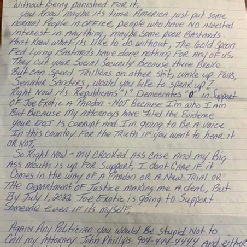 Without being punished for it,
you know maybe its time America just put some
normal People in office, people who have No Invested
Interest in anything, maybe some poor Bastards
that know what it's like to do without, The Good Show
Pet Loving Americans have done nothing for any of us,
They cut your Social Security because there Broke
But can spend Trillions on other shit, wake up Folks,
Senators Senators, would you like to speak up?
Right Now its Republicans "1" Democrates "0" in support
of Joe Exotic a Pardon - NOT Because I'm who I am
But because my Attorneys have filed the Evidence
your D.O.J. is corrupt and I'm going to be a voice
in this country for the Truth if you want to hear it
or NOT,
So Right Now - my crooked ass case and my Big
Ass mouth is up for support, I don't care if it
comes in the way of a Pardon or a New Trial or
The Department of Justice making me a deal, But
By July 1, 2022 Joe Exotic is going to support
someone even if it's myself
Again Any Politician, you would be stupid Not to
Call my Attorney John Phillips 904-444-4444 and